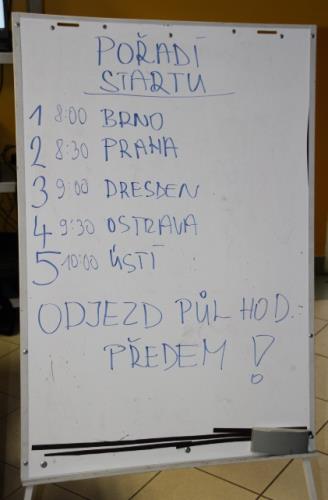 POŘADÍ
STARTU
1 8:00 BRNO
2 8:30 PRAHA
3 9:00 DRESDEN
4 9:30 OSTRAVA
5 10:00 ÚSTÍ
ODJEZD PŮL HOD.
PŘEDEM!